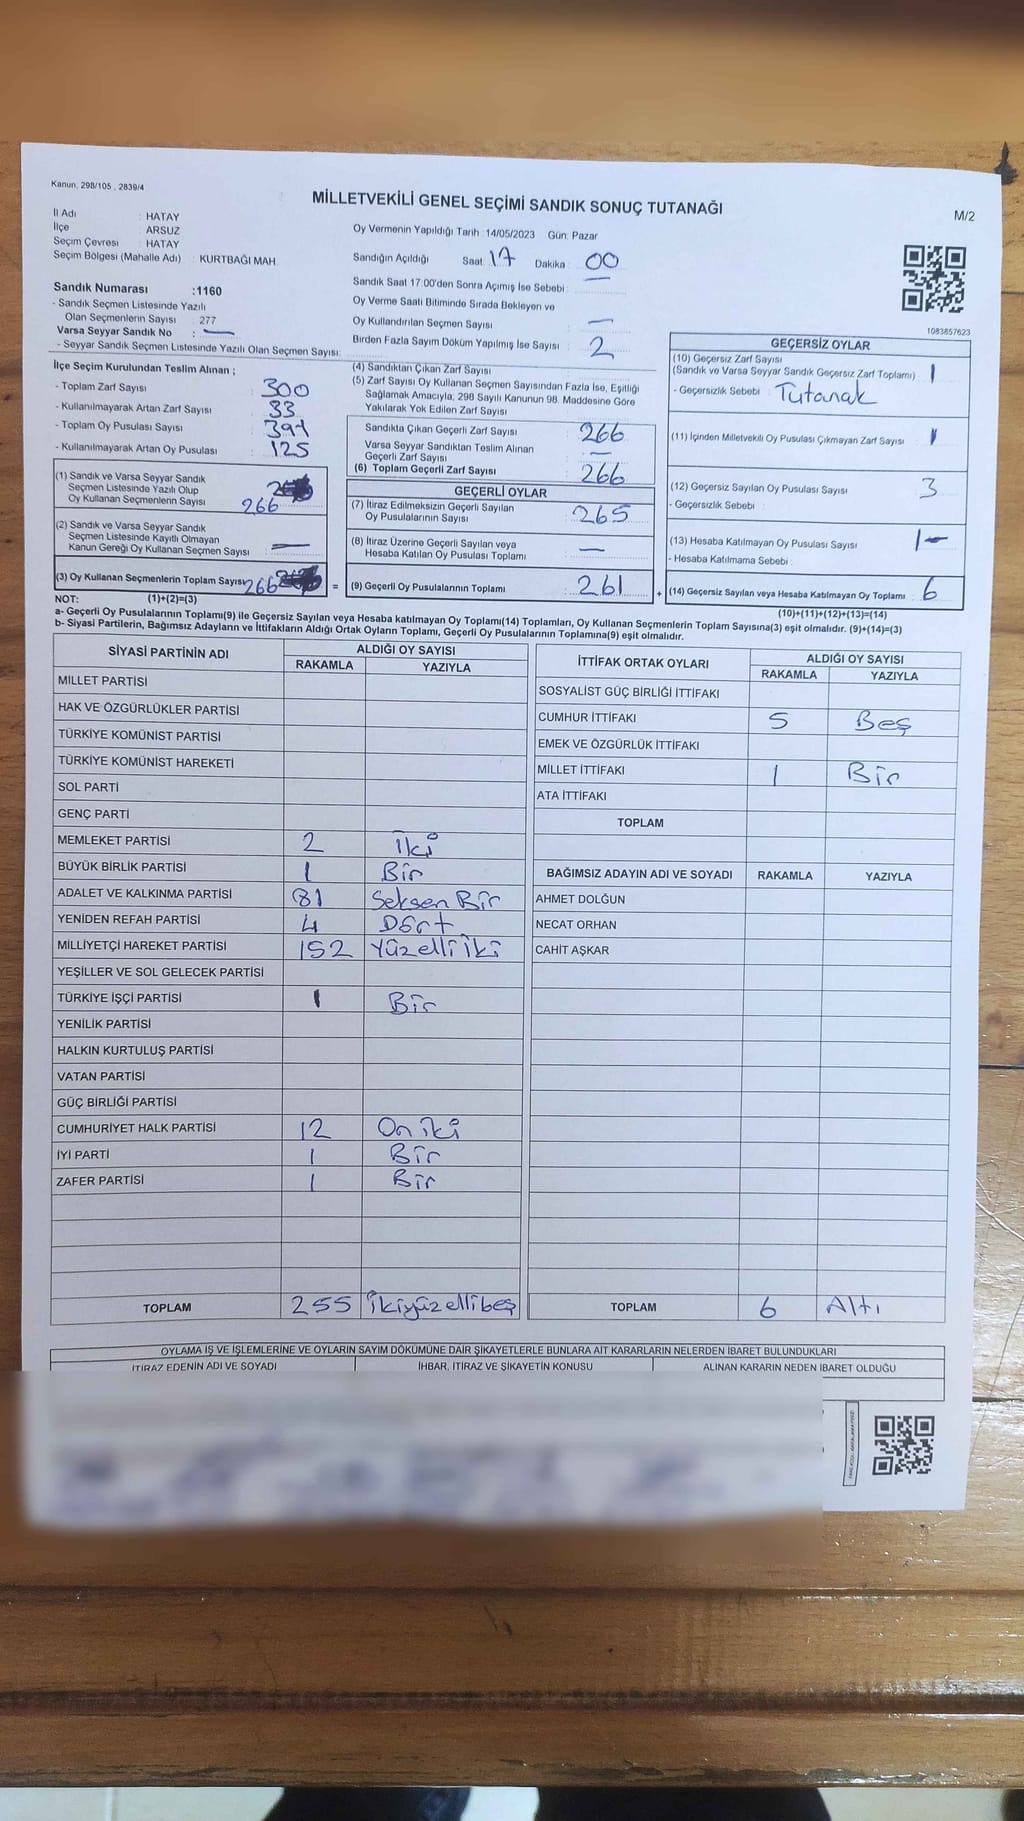 Kanun, 298/105 , 2839/4
MİLLETVEKİLİ GENEL SEÇİMİ SANDIK SONUÇ TUTANAĞI
M/2
İl Adı : HATAY
İlçe : ARSUZ
Seçim Çevresi : HATAY
Seçim Bölgesi (Mahalle Adı) : KURTBAĞI MAH.
Sandık Numarası :1160
- Sandık Seçmen Listesinde Yazılı
Olan Seçmenlerin Sayısı : 277
Varsa Seyyar Sandık No : —
- Seyyar Sandık Seçmen Listesinde Yazılı Olan Seçmen Sayısı:
Oy Vermenin Yapıldığı Tarih :14/05/2023 Gün: Pazar
Sandığın Açıldığı Saat: 17 Dakika : 00
Sandık Saat 17.00'den Sonra Açımış İse Sebebi :
Oy Verme Saati Bitiminde Sırada Bekleyen ve
Oy Kullandırılan Seçmen Sayısı : —
Birden Fazla Sayım Döküm Yapılmış İse Sayısı : 2
1083857623
İlçe Seçim Kurulundan Teslim Alınan ;
- Toplam Zarf Sayısı : 300
- Kullanılmayarak Artan Zarf Sayısı : 33
- Toplam Oy Pusulası Sayısı : 391
- Kullanılmayarak Artan Oy Pusulası : 125
(1) Sandık ve Varsa Seyyar Sandık
Seçmen Listesinde Yazılı Olup
Oy Kullanan Seçmenlerin Sayısı : 266
(2) Sandık ve Varsa Seyyar Sandık
Seçmen Listesinde Kayıtlı Olmayan
Kanun Gereği Oy Kullanan Seçmen Sayısı : —
(3) Oy Kullanan Seçmenlerin Toplam Sayısı: 266 =
(4) Sandıktan Çıkan Zarf Sayısı :
(5) Zarf Sayısı Oy Kullanan Seçmen Sayısından Fazla İse, Eşitliği
Sağlamak Amacıyla; 298 Sayılı Kanunun 98. Maddesine Göre
Yakılarak Yok Edilen Zarf Sayısı :
Sandıkta Çıkan Geçerli Zarf Sayısı : 266
Varsa Seyyar Sandıktan Teslim Alınan
Geçerli Zarf Sayısı : —
(6) Toplam Geçerli Zarf Sayısı : 266
GEÇERLİ OYLAR
(7) İtiraz Edilmeksizin Geçerli Sayılan
Oy Pusulalarının Sayısı : 265
(8) İtiraz Üzerine Geçerli Sayılan veya
Hesaba Katılan Oy Pusulası Toplamı : —
(9) Geçerli Oy Pusulalarının Toplamı : 261 +
GEÇERSİZ OYLAR
(10) Geçersiz Zarf Sayısı
(Sandık ve Varsa Seyyar Sandık Geçersiz Zarf Toplamı) : 1
- Geçersizlik Sebebi : Tutanak
(11) İçinden Milletvekili Oy Pusulası Çıkmayan Zarf Sayısı : 1
(12) Geçersiz Sayılan Oy Pusulası Sayısı : 3
- Geçersizlik Sebebi :
(13) Hesaba Katılmayan Oy Pusulası Sayısı : 1-
- Hesaba Katılmama Sebebi :
(14) Geçersiz Sayılan veya Hesaba Katılmayan Oy Toplamı : 6
NOT: (1)+(2)=(3)
(10)+(11)+(12)+(13)=(14)
a- Geçerli Oy Pusulalarının Toplamı(9) ile Geçersiz Sayılan veya Hesaba katılmayan Oy Toplamı(14) Toplamları, Oy Kullanan Seçmenlerin Toplam Sayısına(3) eşit olmalıdır. (9)+(14)=(3)
b- Siyasi Partilerin, Bağımsız Adayların ve İttifakların Aldığı Ortak Oyların Toplamı, Geçerli Oy Pusulalarının Toplamına(9) eşit olmalıdır.
SİYASİ PARTİNİN ADI
ALDIĞI OY SAYISI
RAKAMLA YAZIYLA
MİLLET PARTİSİ
HAK VE ÖZGÜRLÜKLER PARTİSİ
TÜRKİYE KOMÜNİST PARTİSİ
TÜRKİYE KOMÜNİST HAREKETİ
SOL PARTİ
GENÇ PARTİ
MEMLEKET PARTİSİ 2 İki
BÜYÜK BİRLİK PARTİSİ 1 Bir
ADALET VE KALKINMA PARTİSİ 81 Seksen Bir
YENİDEN REFAH PARTİSİ 4 Dört
MİLLİYETÇİ HAREKET PARTİSİ 152 Yüzelli iki
YEŞİLLER VE SOL GELECEK PARTİSİ
TÜRKİYE İŞÇİ PARTİSİ 1 Bir
YENİLİK PARTİSİ
HALKIN KURTULUŞ PARTİSİ
VATAN PARTİSİ
GÜÇ BİRLİĞİ PARTİSİ
CUMHURİYET HALK PARTİSİ 12 On iki
İYİ PARTİ 1 Bir
ZAFER PARTİSİ 1 Bir
TOPLAM 255 ikiyüzellibeş
İTTİFAK ORTAK OYLARI
ALDIĞI OY SAYISI
RAKAMLA YAZIYLA
SOSYALİST GÜÇ BİRLİĞİ İTTİFAKI
CUMHUR İTTİFAKI 5 Beş
EMEK VE ÖZGÜRLÜK İTTİFAKI
MİLLET İTTİFAKI 1 Bir
ATA İTTİFAKI
TOPLAM
BAĞIMSIZ ADAYIN ADI VE SOYADI RAKAMLA YAZIYLA
AHMET DOLĞUN
NECAT ORHAN
CAHİT AŞKAR
TOPLAM 6 Altı
OYLAMA İŞ VE İŞLEMLERİNE VE OYLARIN SAYIM DÖKÜMÜNE DAİR ŞİKAYETLERLE BUNLARA AİT KARARLARIN NELERDEN İBARET BULUNDUKLARI
İTİRAZ EDENİN ADI VE SOYADI İHBAR, İTİRAZ VE ŞİKAYETİN KONUSU ALINAN KARARIN NEDEN İBARET OLDUĞU